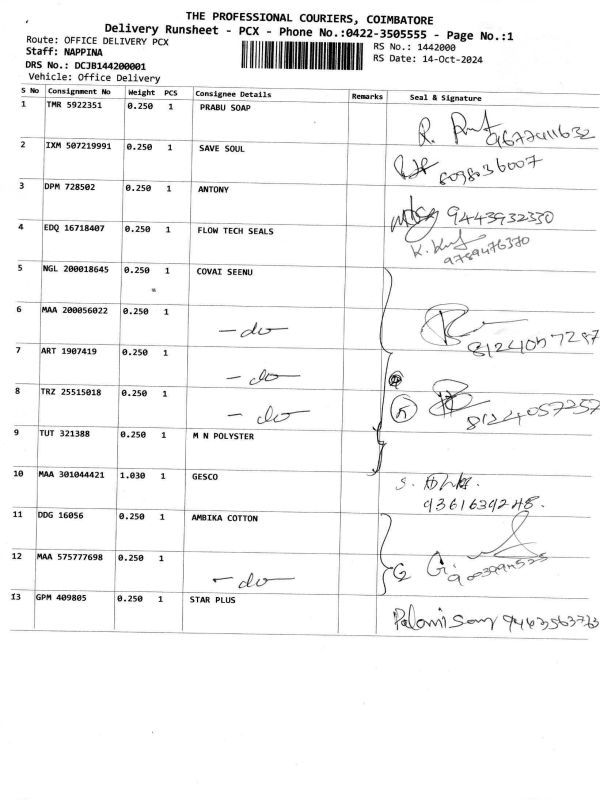 THE PROFESSIONAL COURIERS, COIMBATORE
Delivery Runsheet - PCX - Phone No.:0422-3505555 - Page No.:1
Route: OFFICE DELIVERY PCX
RS No.: 1442000
Staff: NAPPINA
RS Date: 14-Oct-2024
DRS No.: DCJB144200001
Vehicle: Office Delivery
S No Consignment No Weight PCS Consignee Details Remarks Seal & Signature
1 TMR 5922351 0.250 1 PRABU SOAP
9677411632
2 IXM 507219991 0.250 1 SAVE SOUL
8098036007
3 DPM 728502 0.250 1 ANTONY
9443932330
4 EDQ 16718407 0.250 1 FLOW TECH SEALS
9789476370
5 NGL 200018645 0.250 1 COVAI SEENU
6 MAA 200056022 0.250 1 -do-
7 ART 1907419 0.250 1 -do-
8 TRZ 25515018 0.250 1 -do- 5
8124057257
9 TUT 321388 0.250 1 M N POLYSTER
10 MAA 301044421 1.030 1 GESCO
9361639248.
11 DDG 16056 0.250 1 AMBIKA COTTON
12 MAA 575777698 0.250 1 -do- G.
13 GPM 409805 0.250 1 STAR PLUS